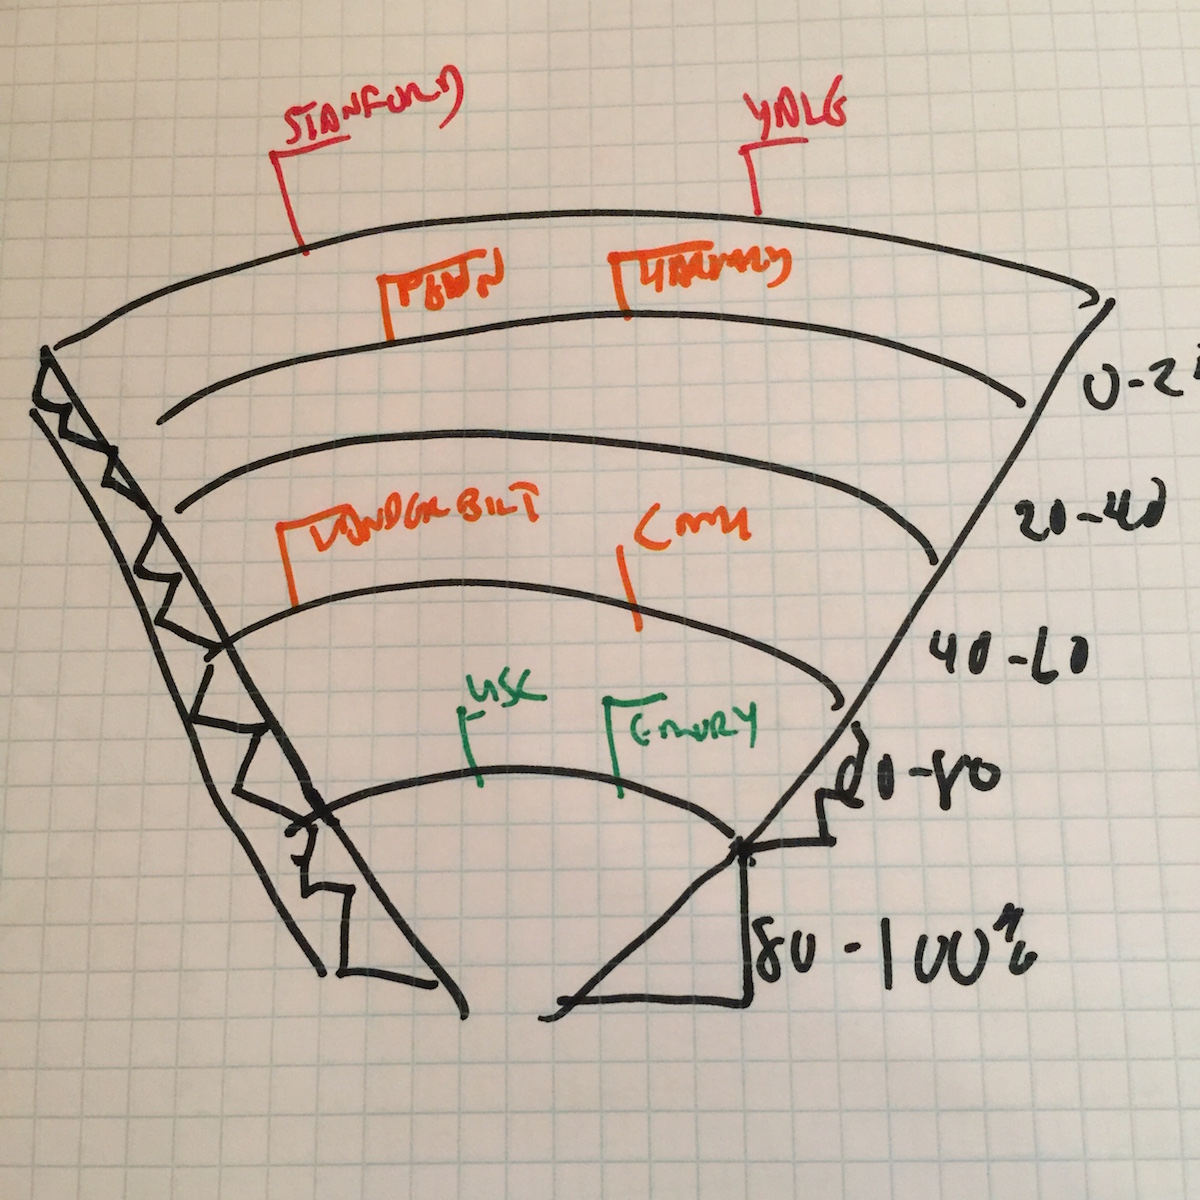 STANFORD
YALE
PENN
HARVARD
0-2
20-40
VANDERBILT
CMU
40-60
USC
EMORY
60-80
80-100%